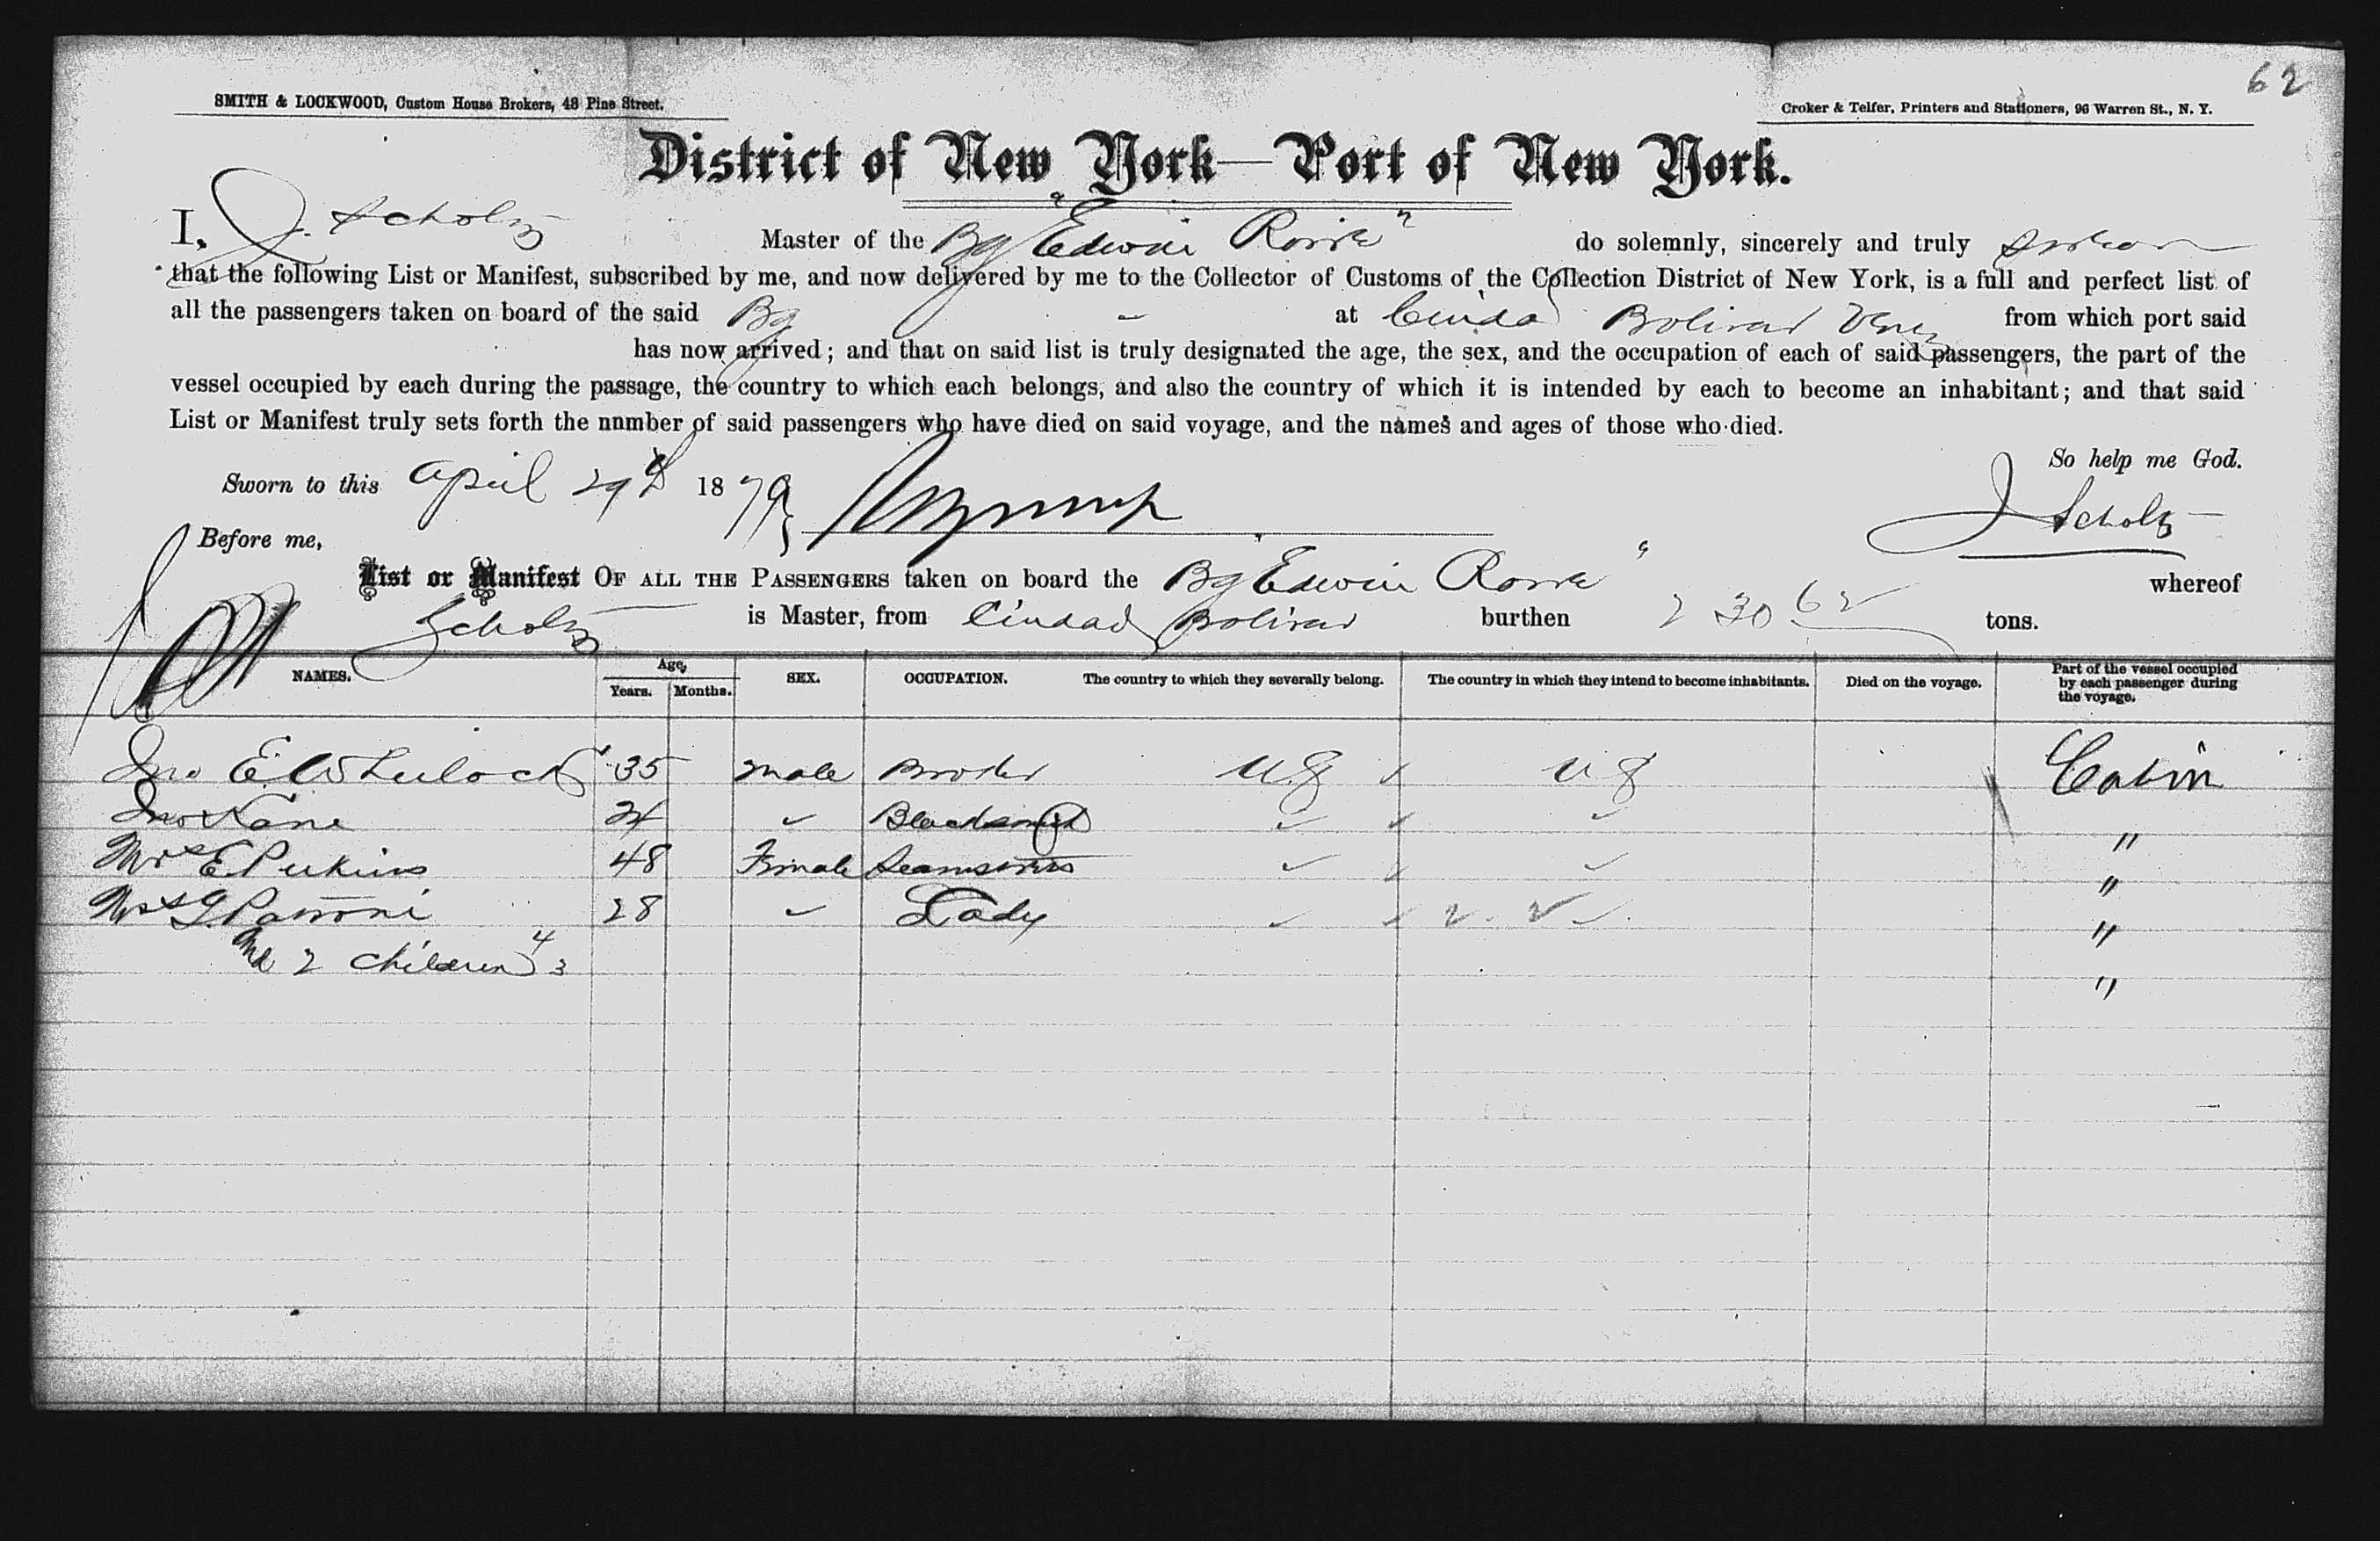 62
SMITH & LOCKWOOD, Custom House Brokers, 48 Pine Street.
Croker & Telfer, Printers and Stationers, 96 Warren St., N. Y.
District of New York—Port of New York.
I, J. Scholz Master of the Bg "Edwin Rowe" do solemnly, sincerely and truly swear
that the following List or Manifest, subscribed by me, and now delivered by me to the Collector of Customs of the Collection District of New York, is a full and perfect list of
all the passengers taken on board of the said Bg at Ciudad Bolivar Venz from which port said
has now arrived; and that on said list is truly designated the age, the sex, and the occupation of each of said passengers, the part of the
vessel occupied by each during the passage, the country to which each belongs, and also the country of which it is intended by each to become an inhabitant; and that said
List or Manifest truly sets forth the nnmber of said passengers who have died on said voyage, and the names and ages of those who died.
So help me God.
Sworn to this April 29th 1879
J Scholz
Before me,
List or Manifest OF ALL THE PASSENGERS taken on board the Bg Edwin Rowe" whereof
Scholz is Master, from Ciudad Bolivar burthen 230 62 tons.
NAMES. Age, Years. Months. SEX. OCCUPATION. The country to which they severally belong. The country in which they intend to become inhabitants. Died on the voyage. Part of the vessel occupied by each passenger during the voyage.
Jno E. Wheelock 35 Male US US Cabin
Jno Kane 24 " Blacksmith " " "
Mrs E Perkins 48 Female Seamstress " " "
Mrs G. 28 " Lady " " "
and 2 children 4 3 "